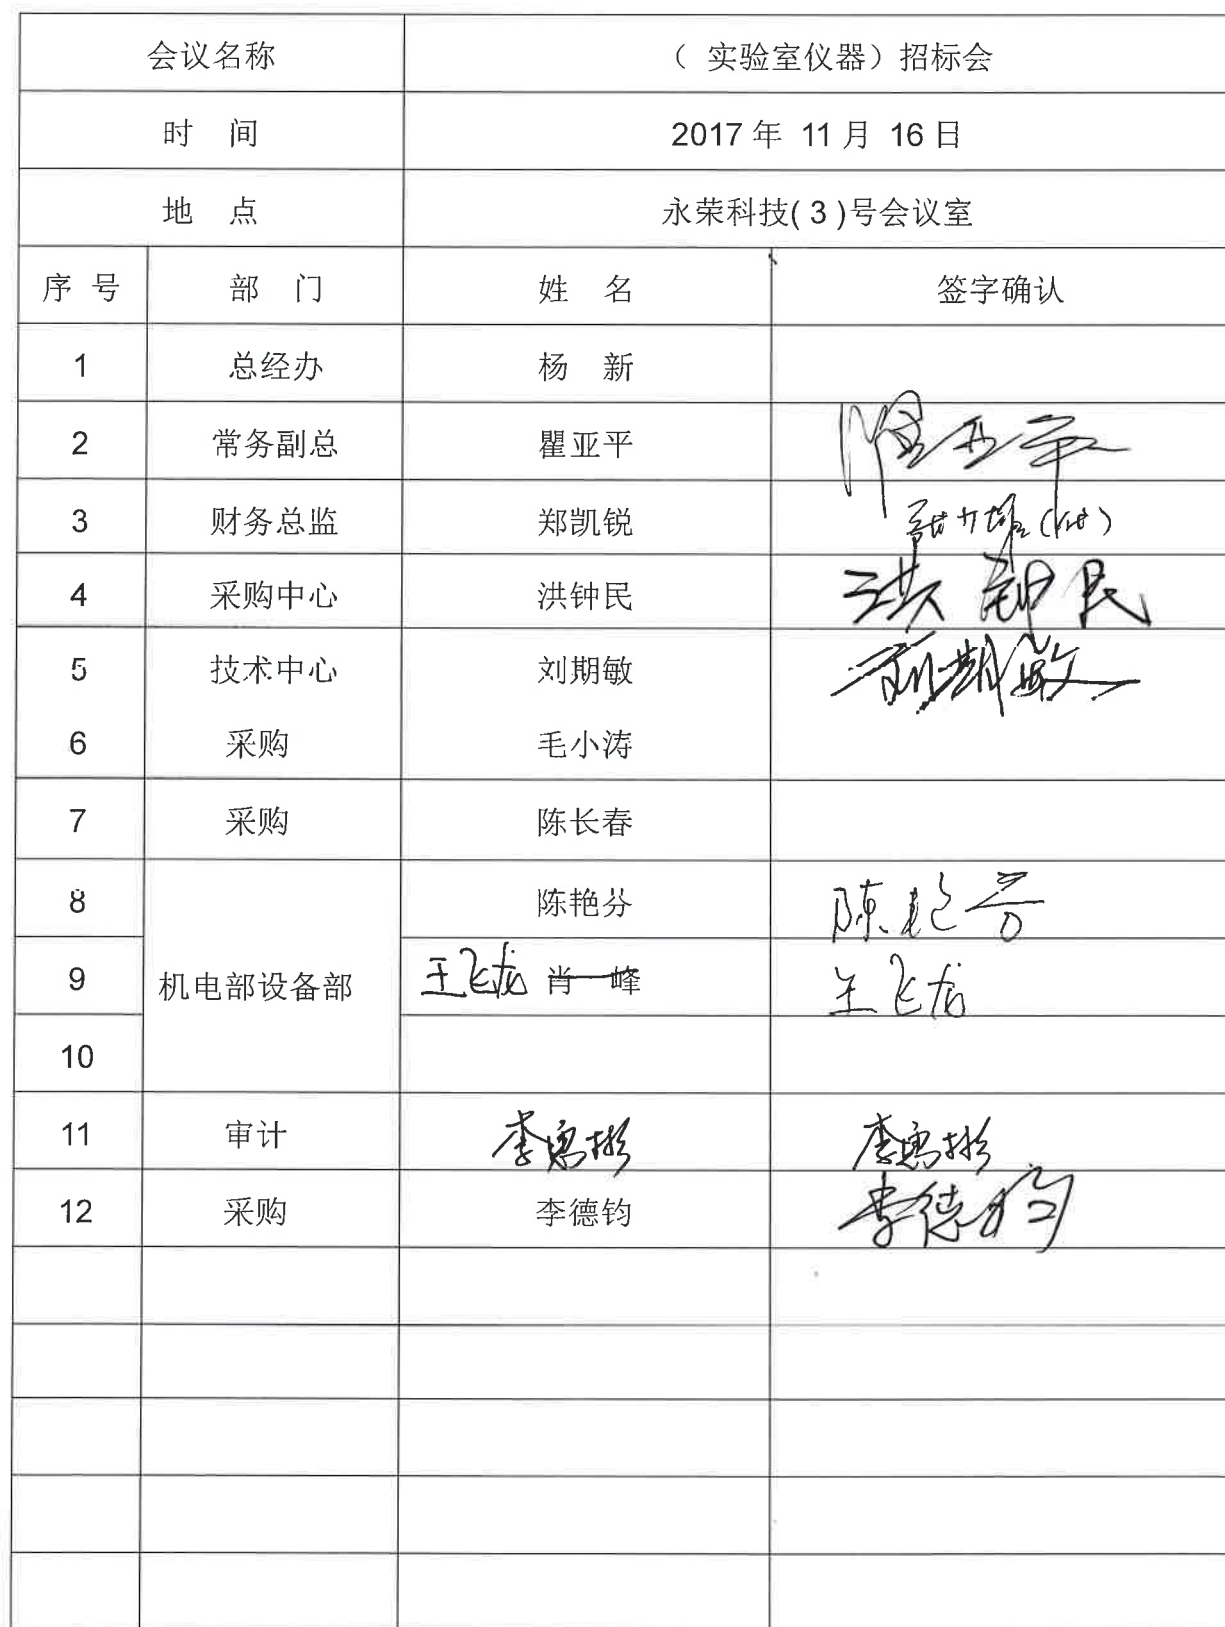 会议名称 （ 实验室仪器）招标会
时 间 2017 年 11 月 16 日
地 点 永荣科技( 3 )号会议室
序 号 部 门 姓 名 签字确认
1 总经办 杨 新
2 常务副总 瞿亚平 瞿亚平
3 财务总监 郑凯锐 (代)
4 采购中心 洪钟民 洪钟民
5 技术中心 刘期敏 刘期敏
6 采购 毛小涛
7 采购 陈长春
8 陈艳芬 陈艳芬
9 机电部设备部 王飞龙 肖 峰 王飞龙
10
11 审计
12 采购 李德钧 李德钧